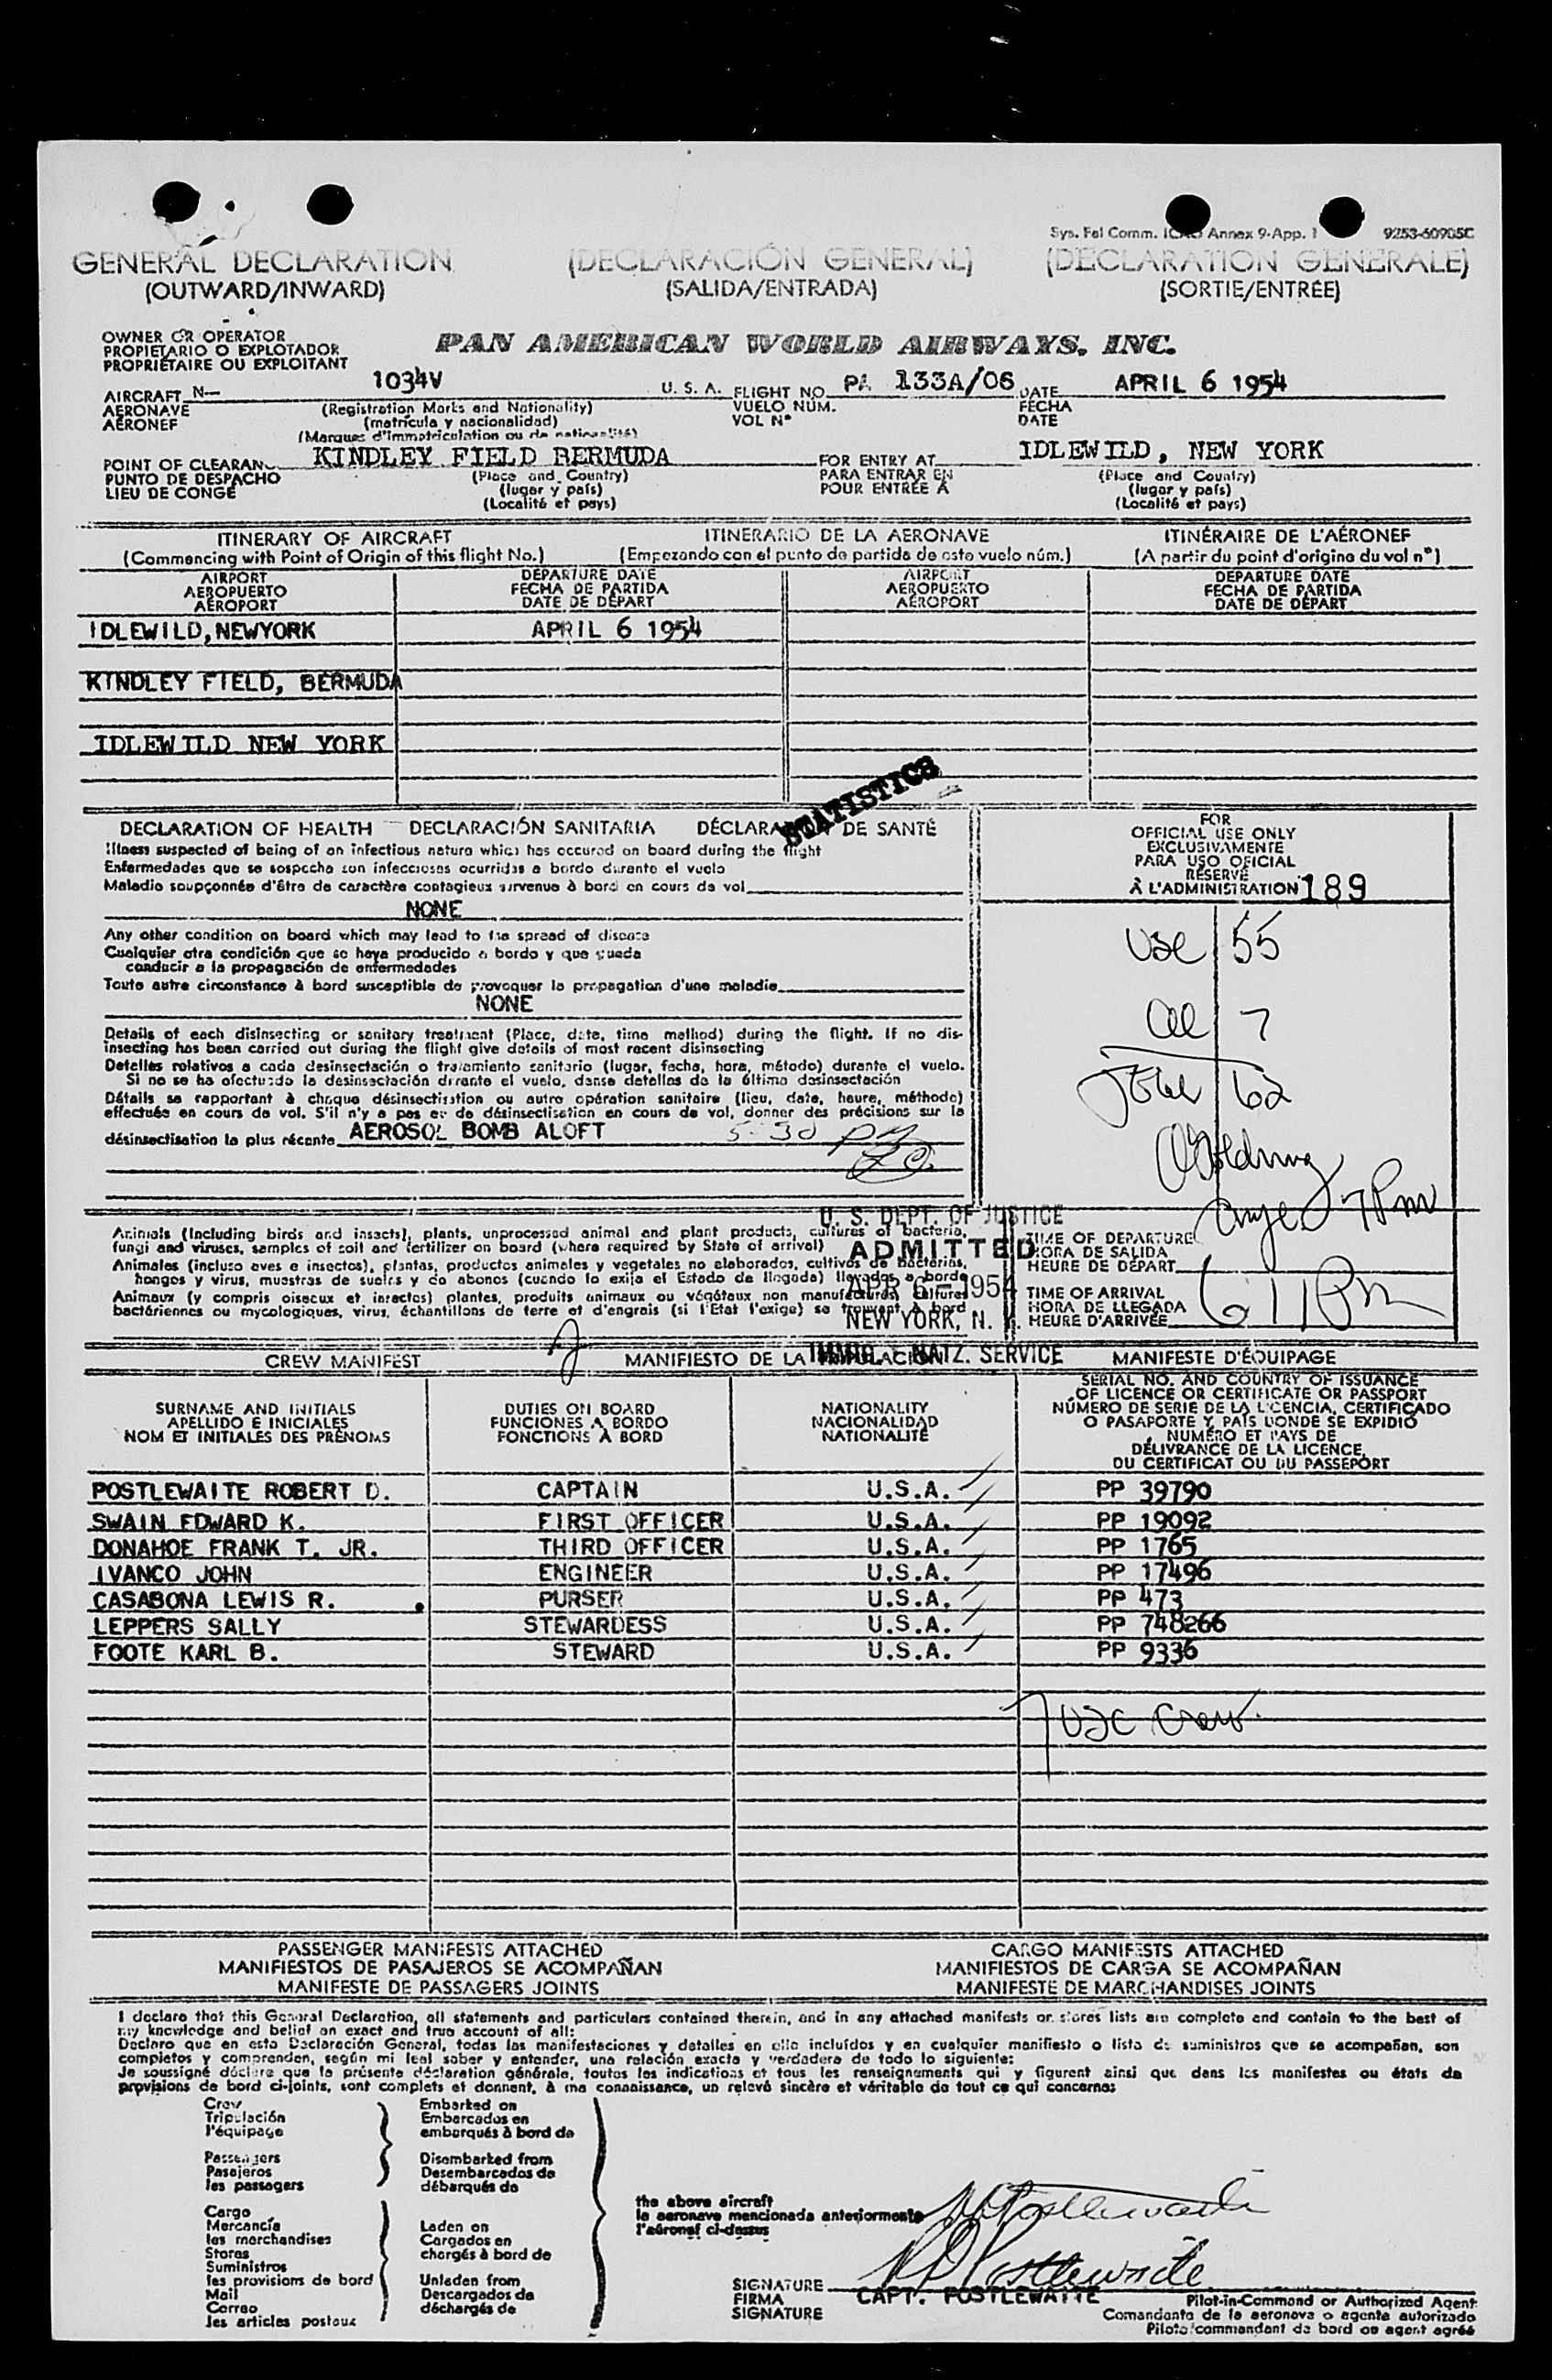 Sys. Fal Comm. ICAO Annex 9-App. 1 9253-60905C
GENERAL DECLARATION (DECLARACIÓN GENERAL) (DECLARATION GENERALE)
(OUTWARD/INWARD) (SALIDA/ENTRADA) (SORTIE/ENTRÉE)
OWNER OR OPERATOR
PROPIETARIO O EXPLOTADOR
PROPRIÉTAIRE OU EXPLOITANT
PAN AMERICAN WORLD AIRWAYS, INC.
AIRCRAFT N— 1034V U. S. A. FLIGHT NO. PA 133A/06 DATE APRIL 6 1954
AERONAVE (Registration Marks and Nationality) VUELO NÚM. FECHA
AÉRONEF (matrícula y nacionalidad) VOL Nº DATE
(Marques d'immatriculation ou de nationalité)
POINT OF CLEARANCE KINDLEY FIELD BERMUDA FOR ENTRY AT IDLEWILD, NEW YORK
PUNTO DE DESPACHO (Place and Country) PARA ENTRAR EN (Place and Country)
LIEU DE CONGÉ (lugar y país) POUR ENTRÉE À (lugar y país)
(Localité et pays) (Localité et pays)
ITINERARY OF AIRCRAFT ITINERARIO DE LA AERONAVE ITINÉRAIRE DE L'AÉRONEF
(Commencing with Point of Origin of this flight No.) (Empezando con el punto de partida de este vuelo núm.) (A partir du point d'origine du vol nº)
AIRPORT DEPARTURE DATE AIRPORT DEPARTURE DATE
AEROPUERTO FECHA DE PARTIDA AEROPUERTO FECHA DE PARTIDA
AÉROPORT DATE DE DÉPART AÉROPORT DATE DE DÉPART
IDLEWILD, NEWYORK APRIL 6 1954
KINDLEY FIELD, BERMUDA
IDLEWILD NEW YORK
STATISTICS
DECLARATION OF HEALTH DECLARACIÓN SANITARIA DÉCLARATION DE SANTÉ
Illness suspected of being of an infectious nature which has occured on board during the flight
Enfermedades que se sospecha son infecciosas ocurridas a bordo durante el vuelo
Maladie soupçonnée d'être de caractère contagieux survenue à bord en cours de vol
NONE
Any other condition on board which may lead to the spread of disease
Cualquier otra condición que se haya producido a bordo y que pueda
conducir a la propagación de enfermedades
Toute autre circonstance à bord susceptible de provoquer la propagation d'une maladie
NONE
Details of each disinsecting or sanitary treatment (Place, date, time method) during the flight. If no dis-
insecting has been carried out during the flight give details of most recent disinsecting
Detalles relativos a cada desinsectación o tratamiento sanitario (lugar, fecha, hora, método) durante el vuelo.
Si no se ha efectuado la desinsectación durante el vuelo, danse detalles de la última desinsectación
Détails se rapportant à chaque désinsectisation ou autre opération sanitaire (lieu, date, heure, méthode)
effectuée en cours de vol. S'il n'y a pas eu de désinsectisation en cours de vol, donner des précisions sur la
désinsectisation la plus récente AEROSOL BOMB ALOFT 5-30 PM
FOR
OFFICIAL USE ONLY
EXCLUSIVAMENTE
PARA USO OFICIAL
RÉSERVÉ
À L'ADMINISTRATION 189
USC 55
all 7
Total 62
7Pm
Animals (Including birds and insects), plants, unprocessed animal and plant products, cultures of bacteria,
fungi and viruses, samples of soil and fertilizer on board (where required by State of arrival)
Animales (incluso aves e insectos), plantas, productos animales y vegetales no elaborados, cultivos de bacterias,
hongos y virus, muestras de suelos y de abonos (cuando lo exija el Estado de llegada) llevados a bordo
Animaux (y compris oiseaux et insectes) plantes, produits animaux ou végétaux non manufacturés, cultures
bactériennes ou mycologiques, virus, échantillons de terre et d'engrais (si l'Etat l'exige) se trouvant à bord
U. S. DEPT. OF JUSTICE
ADMITTED
APR 6 - 1954
NEW YORK, N. Y.
IMMIG. & NATZ. SERVICE
TIME OF DEPARTURE
HORA DE SALIDA
HEURE DE DÉPART
TIME OF ARRIVAL
HORA DE LLEGADA
HEURE D'ARRIVÉE 611Pm
CREW MANIFEST MANIFIESTO DE LA TRIPULACIÓN MANIFESTE D'ÉQUIPAGE
SURNAME AND INITIALS
APELLIDO E INICIALES
NOM ET INITIALES DES PRÉNOMS
DUTIES ON BOARD
FUNCIONES A BORDO
FONCTIONS À BORD
NATIONALITY
NACIONALIDAD
NATIONALITÉ
SERIAL NO. AND COUNTRY OF ISSUANCE
OF LICENCE OR CERTIFICATE OR PASSPORT
NÚMERO DE SERIE DE LA LICENCIA, CERTIFICADO
O PASAPORTE Y PAÍS DONDE SE EXPIDIÓ
NUMÉRO ET PAYS DE
DÉLIVRANCE DE LA LICENCE,
DU CERTIFICAT OU DU PASSEPORT
POSTLEWAITE ROBERT D. CAPTAIN U.S.A. PP 39790
SWAIN EDWARD K. FIRST OFFICER U.S.A. PP 19092
DONAHOE FRANK T. JR. THIRD OFFICER U.S.A. PP 1765
IVANCO JOHN ENGINEER U.S.A. PP 17496
CASABONA LEWIS R. PURSER U.S.A. PP 473
LEPPERS SALLY STEWARDESS U.S.A. PP 748266
FOOTE KARL B. STEWARD U.S.A. PP 9336
7 USC Crew.
PASSENGER MANIFESTS ATTACHED CARGO MANIFESTS ATTACHED
MANIFIESTOS DE PASAJEROS SE ACOMPAÑAN MANIFIESTOS DE CARGA SE ACOMPAÑAN
MANIFESTE DE PASSAGERS JOINTS MANIFESTE DE MARCHANDISES JOINTS
I declare that this General Declaration, all statements and particulars contained therein, and in any attached manifests or stores lists are complete and contain to the best of
my knowledge and belief an exact and true account of all:
Declaro que en esta Declaración General, todas las manifestaciones y detalles en ella incluídos y en cualquier manifiesto o lista de suministros que se acompañen, son
completos y comprenden, según mi leal saber y entender, una relación exacta y verdadera de todo lo siguiente:
Je soussigné déclare que la présente déclaration générale, toutes les indications et tous les renseignements qui y figurent ainsi que dans les manifestes ou états de
provisions de bord ci-joints, sont complets et donnent, à ma connaissance, un relevé sincère et véritable de tout ce qui concerne:
Crew Embarked on
Tripulación Embarcados en
l'équipage embarqués à bord de
Passengers Disembarked from
Pasajeros Desembarcados de
les passagers débarqués de
Cargo
Mercancía Laden on
les marchandises Cargados en
Stores chargés à bord de
Suministros
les provisions de bord Unladen from
Mail Descargados de
Correo déchargés de
les articles postaux
the above aircraft
la aeronave mencionada anteriormente
l'aéronef ci-dessus
R D Postlewaite
R D Postlewaite
SIGNATURE CAPT. POSTLEWAITE
FIRMA
SIGNATURE
Pilot-in-Command or Authorized Agent
Comandante de la aeronave o agente autorizado
Pilote commandant de bord ou agent agréé